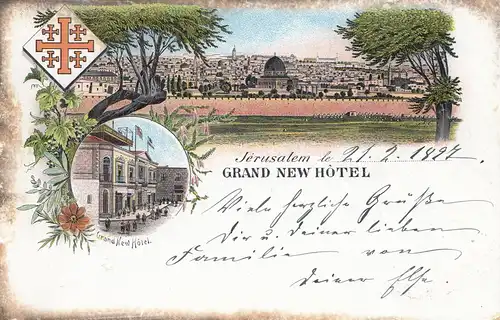 Jérusalem le 21. 2. 1897
GRAND NEW HÔTEL
Grand New Hôtel.
Viele herzliche Grüße
Dir u. Deiner lieben
Familie von
Deiner Else.